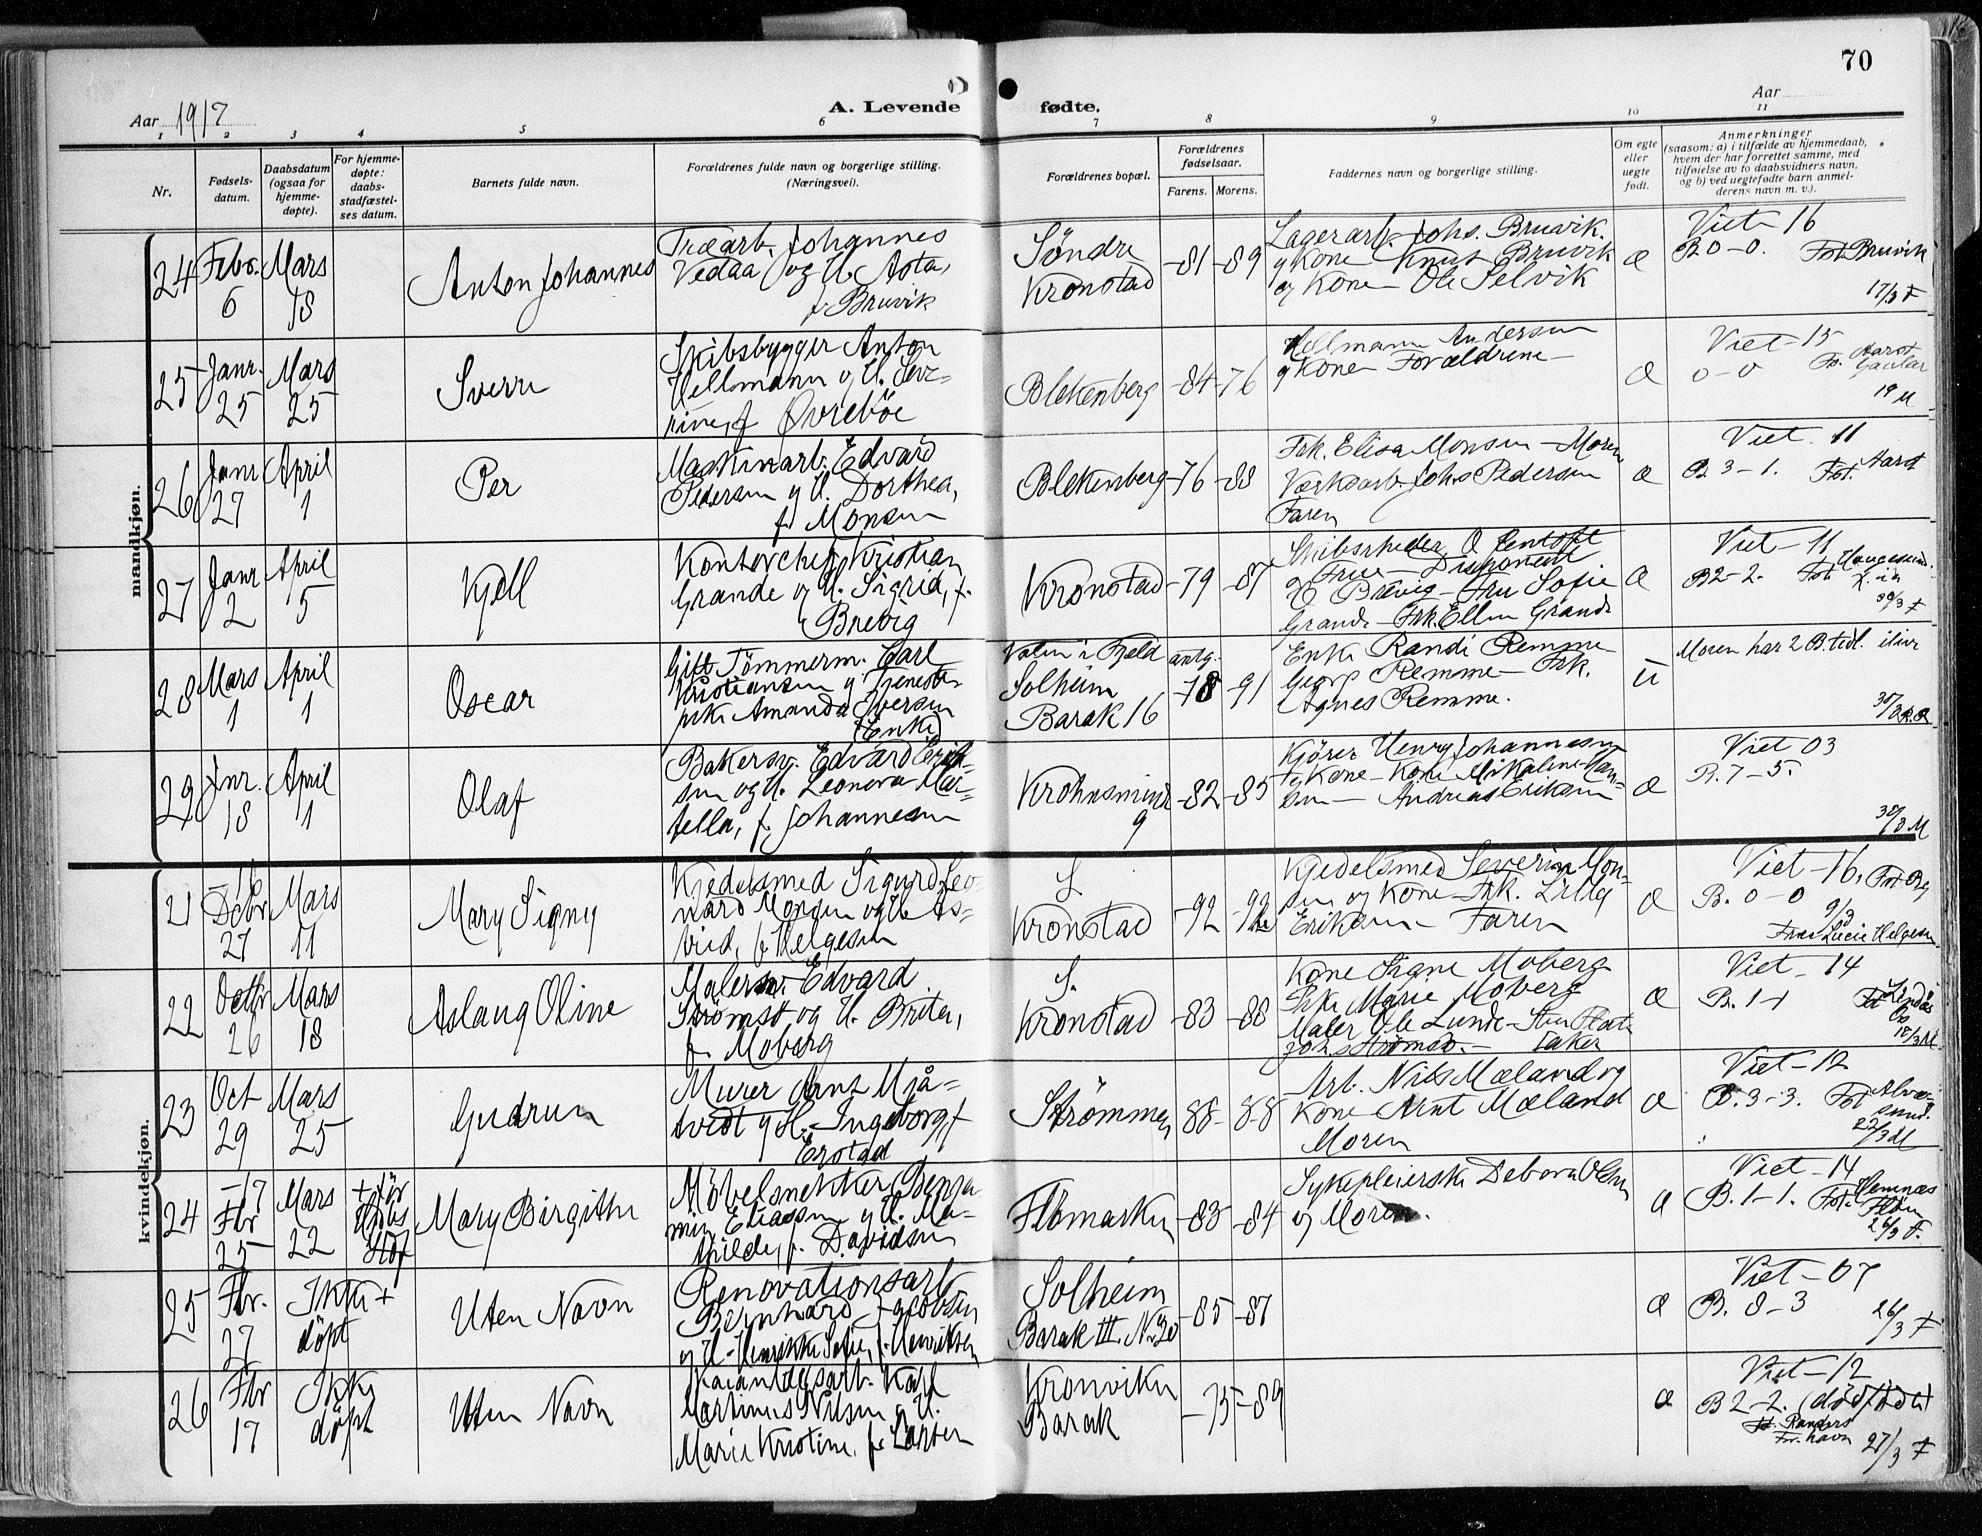 70
Aar 1917
A. Levende
fødte.
Aar
1 2 3 4 5 6 7 8 9 10 11
Nr.
Fødsels-
datum.
Daabsdatum
(ogsaa for
hjemme-
døpte).
For hjemme-
døpte:
daabs-
stadfæstel-
ses datum.
Barnets fulde navn.
Forældrenes fulde navn og borgerlige stilling.
(Næringsvei).
Forældrenes bopæl.
Forældrenes
fødselsaar.
Farens. Morens.
Faddernes navn og borgerlige stilling.
Om egte
eller
uegte
født.
Anmerkninger
(saasom: a) i tilfælde av hjemmedaab,
hvem der har forrettet samme, med
tilføielse av to daabsvidners navn,
og b) ved uegtefødte barn anmel-
derens navn m. v.).
mandkjøn.
24
Febr.
6
Mars
18
Anton Johannes
Træarb. Johannes
Vedaa og H. Asta,
f. Bruvik
Söndre
Kronstad
-81 -89
Lagerarb. Johs. Bruvik.
og Kone Knut Bruvik
og Kone - Ole Selvik
æ
Viet - 16
B 0-0. Fot Bruvik
17/3 F
25
Janr.
25
Mars
25
Sverre
Skibsbygger Anton
Hellmann og H. Seve-
rine, f. Øvreböe
Blekenberg
-84 -76
Hellmann Andersen
og Kone Forældrene
æ
Viet - 15
0-0
19 M
26
Janr
27
April
1
Per
Maskinarb. Edvard
Pedersen og H. Dorthea,
f. Monsen
Blekenberg
-76 -88
Frk. Elisa Monsen - Moren
Værksarb. Johs Pedersen
Faren
æ
Viet - 11
B. 3-1. Fot.
27
Janr
2
April
5
Kjell
Kontorchef Kristian
Grande og H. Sigrid, f.
Brevig
Kronstad
-79 -87
Skibsrheder O Jentoft
og Frue - Disponent
Brevig - Fru Sofie
Grande - Frk. Ellen Grande
æ
Viet - 11
B 2-2. Fot Haugesund.
30/3 F
28
Mars
1
April
1
Oscar
Gift Tømmerm. Carl
Kristiansen og Tjeneste-
pike Amanda Iversen
(Enke)
Valen i Fjeld
Solheim
Barak 16
antg.
-78 -91
Enke Randi Remme
Georg Remme - Frk.
Agnes Remme.
ü
Moren har 2 B. tidl. ilive
29
Jnr.
18
April
1
Olaf
Bakersv. Edvard Erik-
sen og H. Leonora Mar-
tella, f. Johannesen
Krohnsminde
9
-82 -85
Kjörer Henry Johannesen
og Kone - Kone Mikaline Han-
sen - Andreas Eriksen
æ
Viet 03
B. 7-5.
30/3 M
kvindekjøn.
21
-16
Dcbr
27
Mars
11
Mary Signy
Kjedelsmed Sigurd Leo-
nard Monsen og H. As-
trid, f. Helgesen
S.
Kronstad
-92 -92
Kjedelsmed Severin Mon-
sen og Kone - Frk. Lilly
Eriksen - Faren
æ
Viet - 16, Fot Bg
B. 0-0 9/3
Lucie Helgesen
22
Octbr
26
Mars
18
Aslaug Oline
Malersv. Edvard
Strømsø og H. Brita,
f. Moberg
S.
Kronstad
-83 -88
Kone Signe Moberg
Pike Marie Moberg
Maler Ole Lunde -
Johs Strømsø.
æ
Viet - 14
B. 1-1 Fot Lindås
18/3 M.
23
Oct
29
Mars
25
Gudrun
Murer Arnt Mjå-
tvedt og H. Ingeborg f
Erstad
Strømmen
88- -88
Arb. Nils Mæland og
Kone Arnt Mæland
Moren
æ
Viet - 12
B. 3-3. Fot Alver-
sund.
22/3 M
24
-17
Fbr
25
Mars
22
Mary Birgithe
Möbelsnekker Benja-
min Eliassen og H. Ma-
thilde, f. Davidsen
Flömarken
-83 -84
Sykepleierske Debora Olsen
og Moren.
æ
Viet - 14
B. 1-1. Fot. Hemnæs
26/3 F.
25
Fbr.
27
Ikke +
döpt
Uten Navn
Renovationsarb
Bernhard Jacobsen
og H. Henrikke Sofie, f. Henriksen
Solheim
Barak III. N. 20
-85 -87
æ
Viet - 07
B. 8-3
26/3 F
26
Fbr
17
Ikke
döpt
Uten Navn
Karl
Martinus Nilsen og H.
Marie Kristine, f. Larsen
Kronviken
Barak
-75 -89
æ
Viet - 12
B 2-2. (dødfödt)
Fot. Randers
Fr. havn
27/3 F